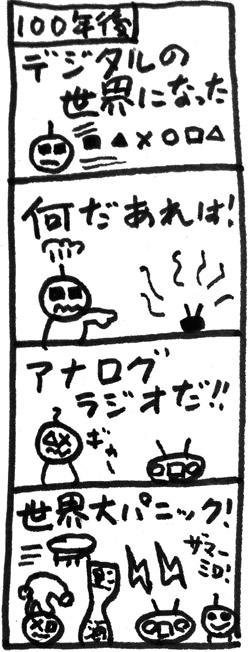 100年後
デジタルの
世界になった
■▲×○□△
何だあれは!
アナログ
ラジオだ!!
ギャー
世界大パニック!
ザマー
ミロ!
酒